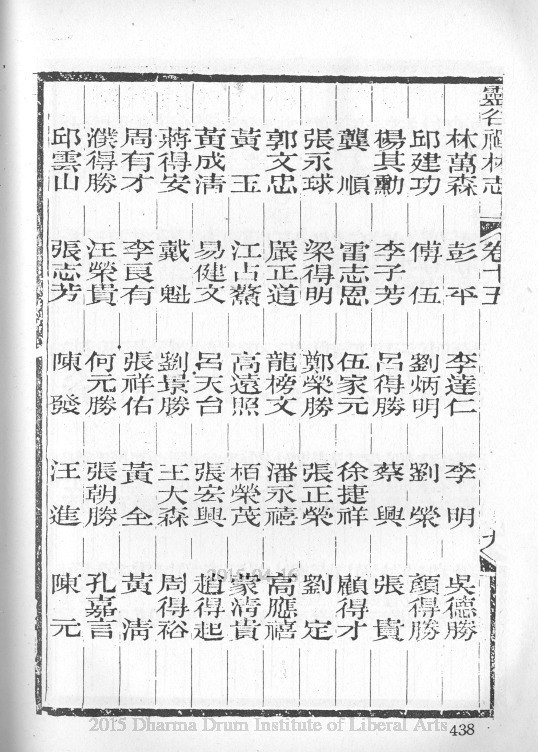 靈谷禪林志 卷十五 九
林萬森 彭平 李達仁 李明 吳德勝
邱建功 傅伍 劉炳明 劉榮 顏得勝
楊其勳 李子芳 呂得勝 蔡興 張貴
龔順 雷志恩 伍家元 徐捷祥 顧得才
張永球 梁得明 鄭榮勝 張正榮 劉定
郭文忠 嚴正道 龍榜文 潘永禧 高應禧
黃玉 江占鰲 高遠照 栢榮茂 蒙清貴
黃成清 易健文 呂天台 張宏興 趙得起
蔣得安 戴魁 劉景勝 王大森 周得裕
周有才 李良有 張祥佑 黃全 黃清
濮得勝 汪榮貴 何元勝 張朝勝 孔嘉言
邱雲山 張志芳 陳發 汪進 陳元
2015-04-16
2015 Dharma Drum Institute of Liberal Arts
438